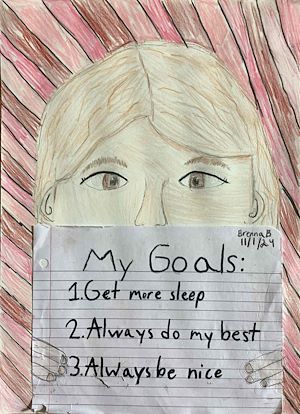 Brenna B
11/1/24
My Goals:
1.Get more sleep
2.Always do my best
3.Always be nice